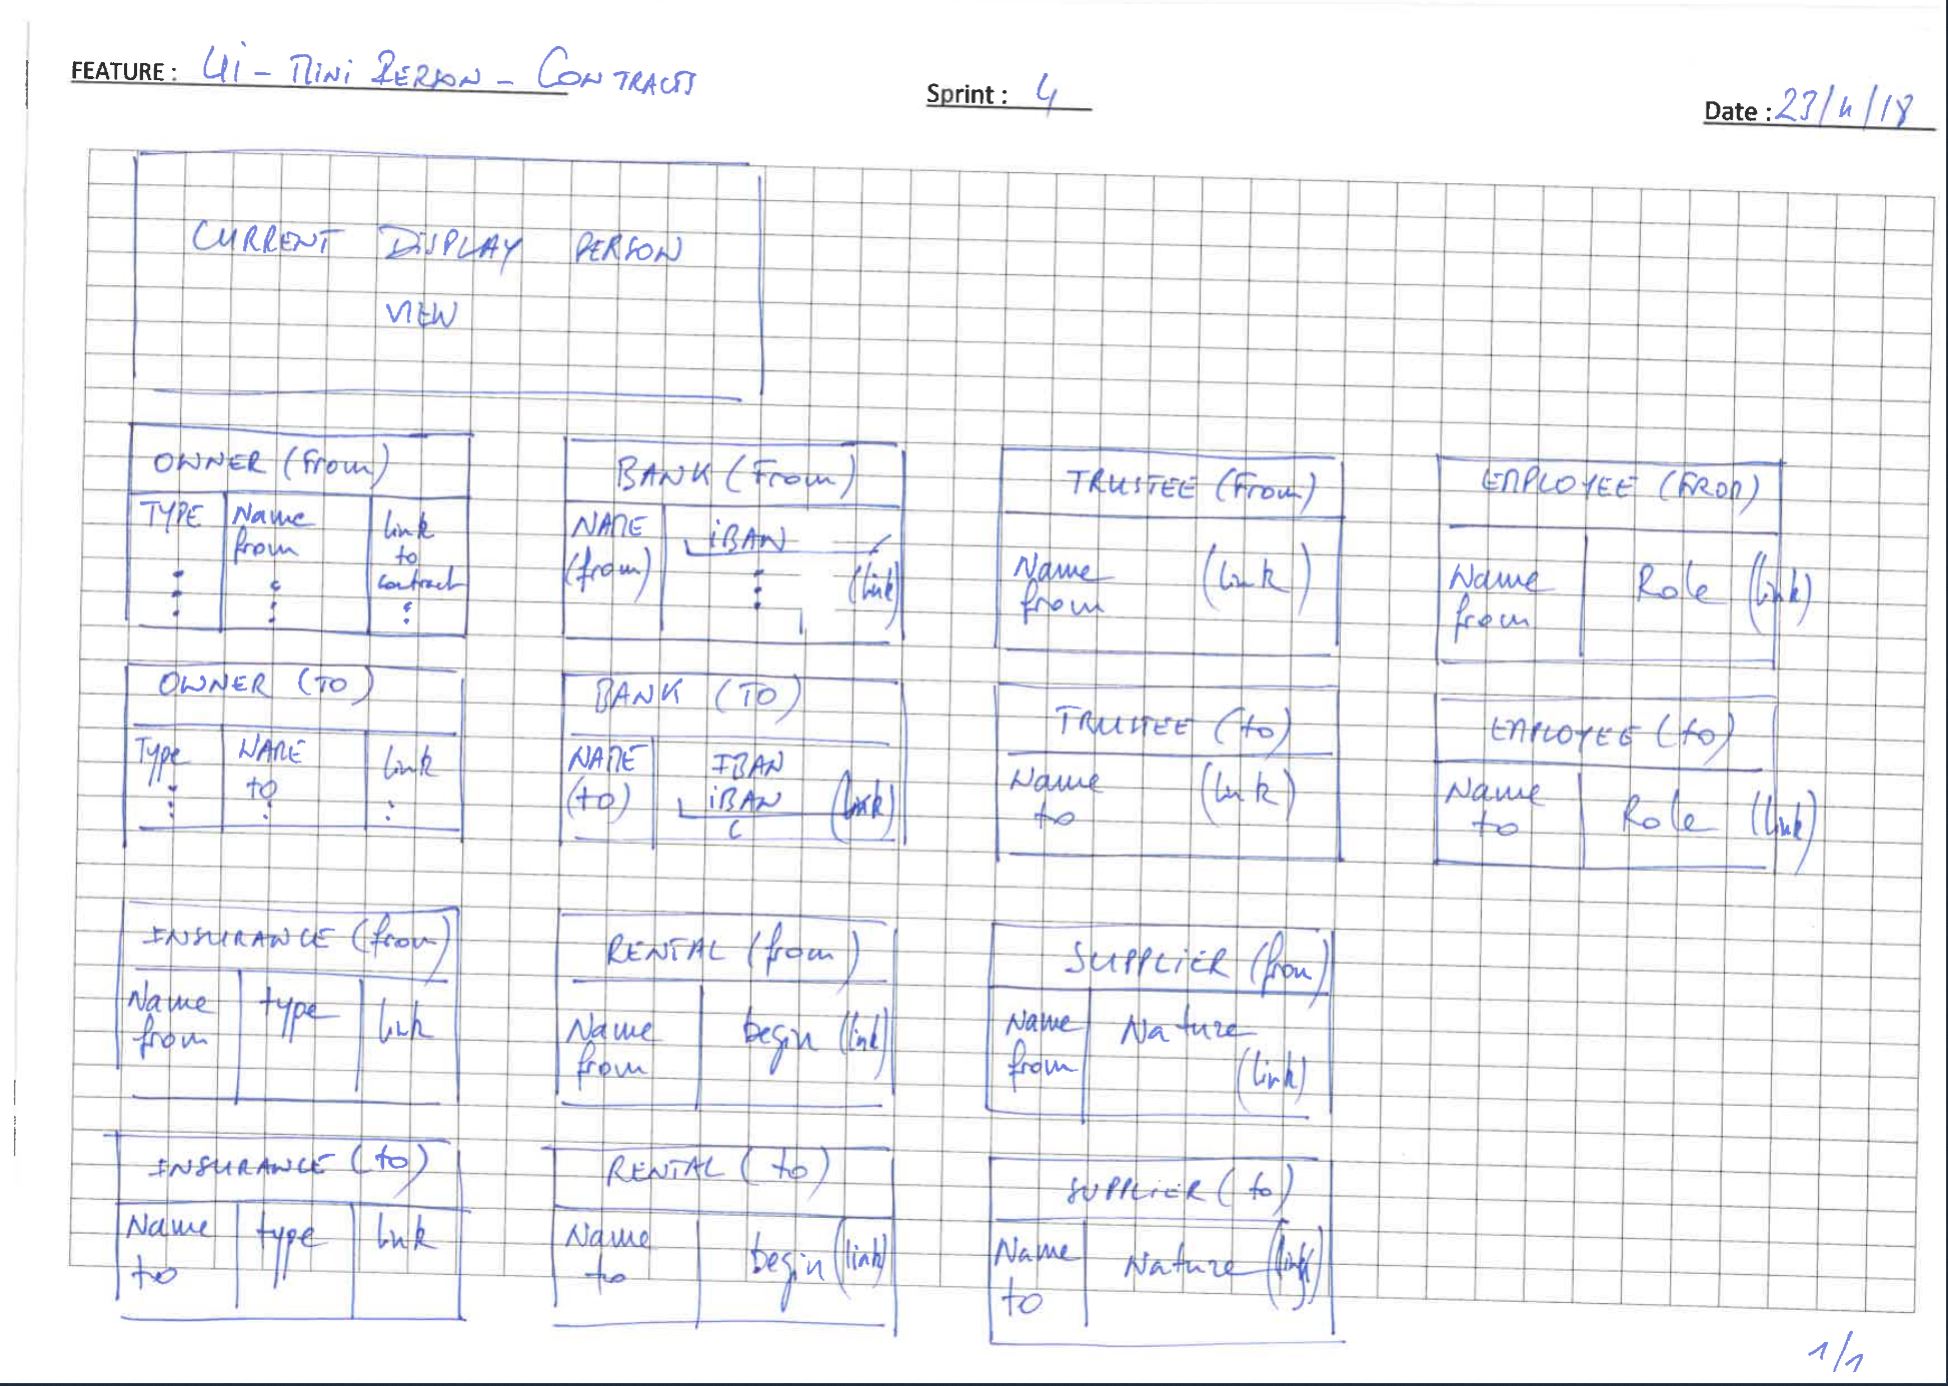 FEATURE : Ui - Mini PERSON - CONTRACTS
Sprint : 4
Date : 23/4/18
CURRENT DISPLAY PERSON
VIEW
OWNER (From)
TYPE
Name
from
link
to
contract
BANK (From)
NAME
(from)
iBAN
(link)
TRUSTEE (From)
Name
from
(link)
EMPLOYEE (FROM)
Name
from
Role (link)
OWNER (TO)
Type
NAME
to
link
BANK (TO)
NAME
(to)
IBAN
iBAN
(link)
TRUSTEE (to)
Name
to
(link)
EMPLOYEE (to)
Name
to
Role (link)
INSURANCE (from)
Name
from
type
link
RENTAL (from)
Name
from
begin (link)
SUPPLIER (from)
Name
from
Nature
(link)
INSURANCE (to)
Name
to
type
link
RENTAL (to)
Name
to
begin (link)
SUPPLIER (to)
Name
to
Nature (link)
1/1